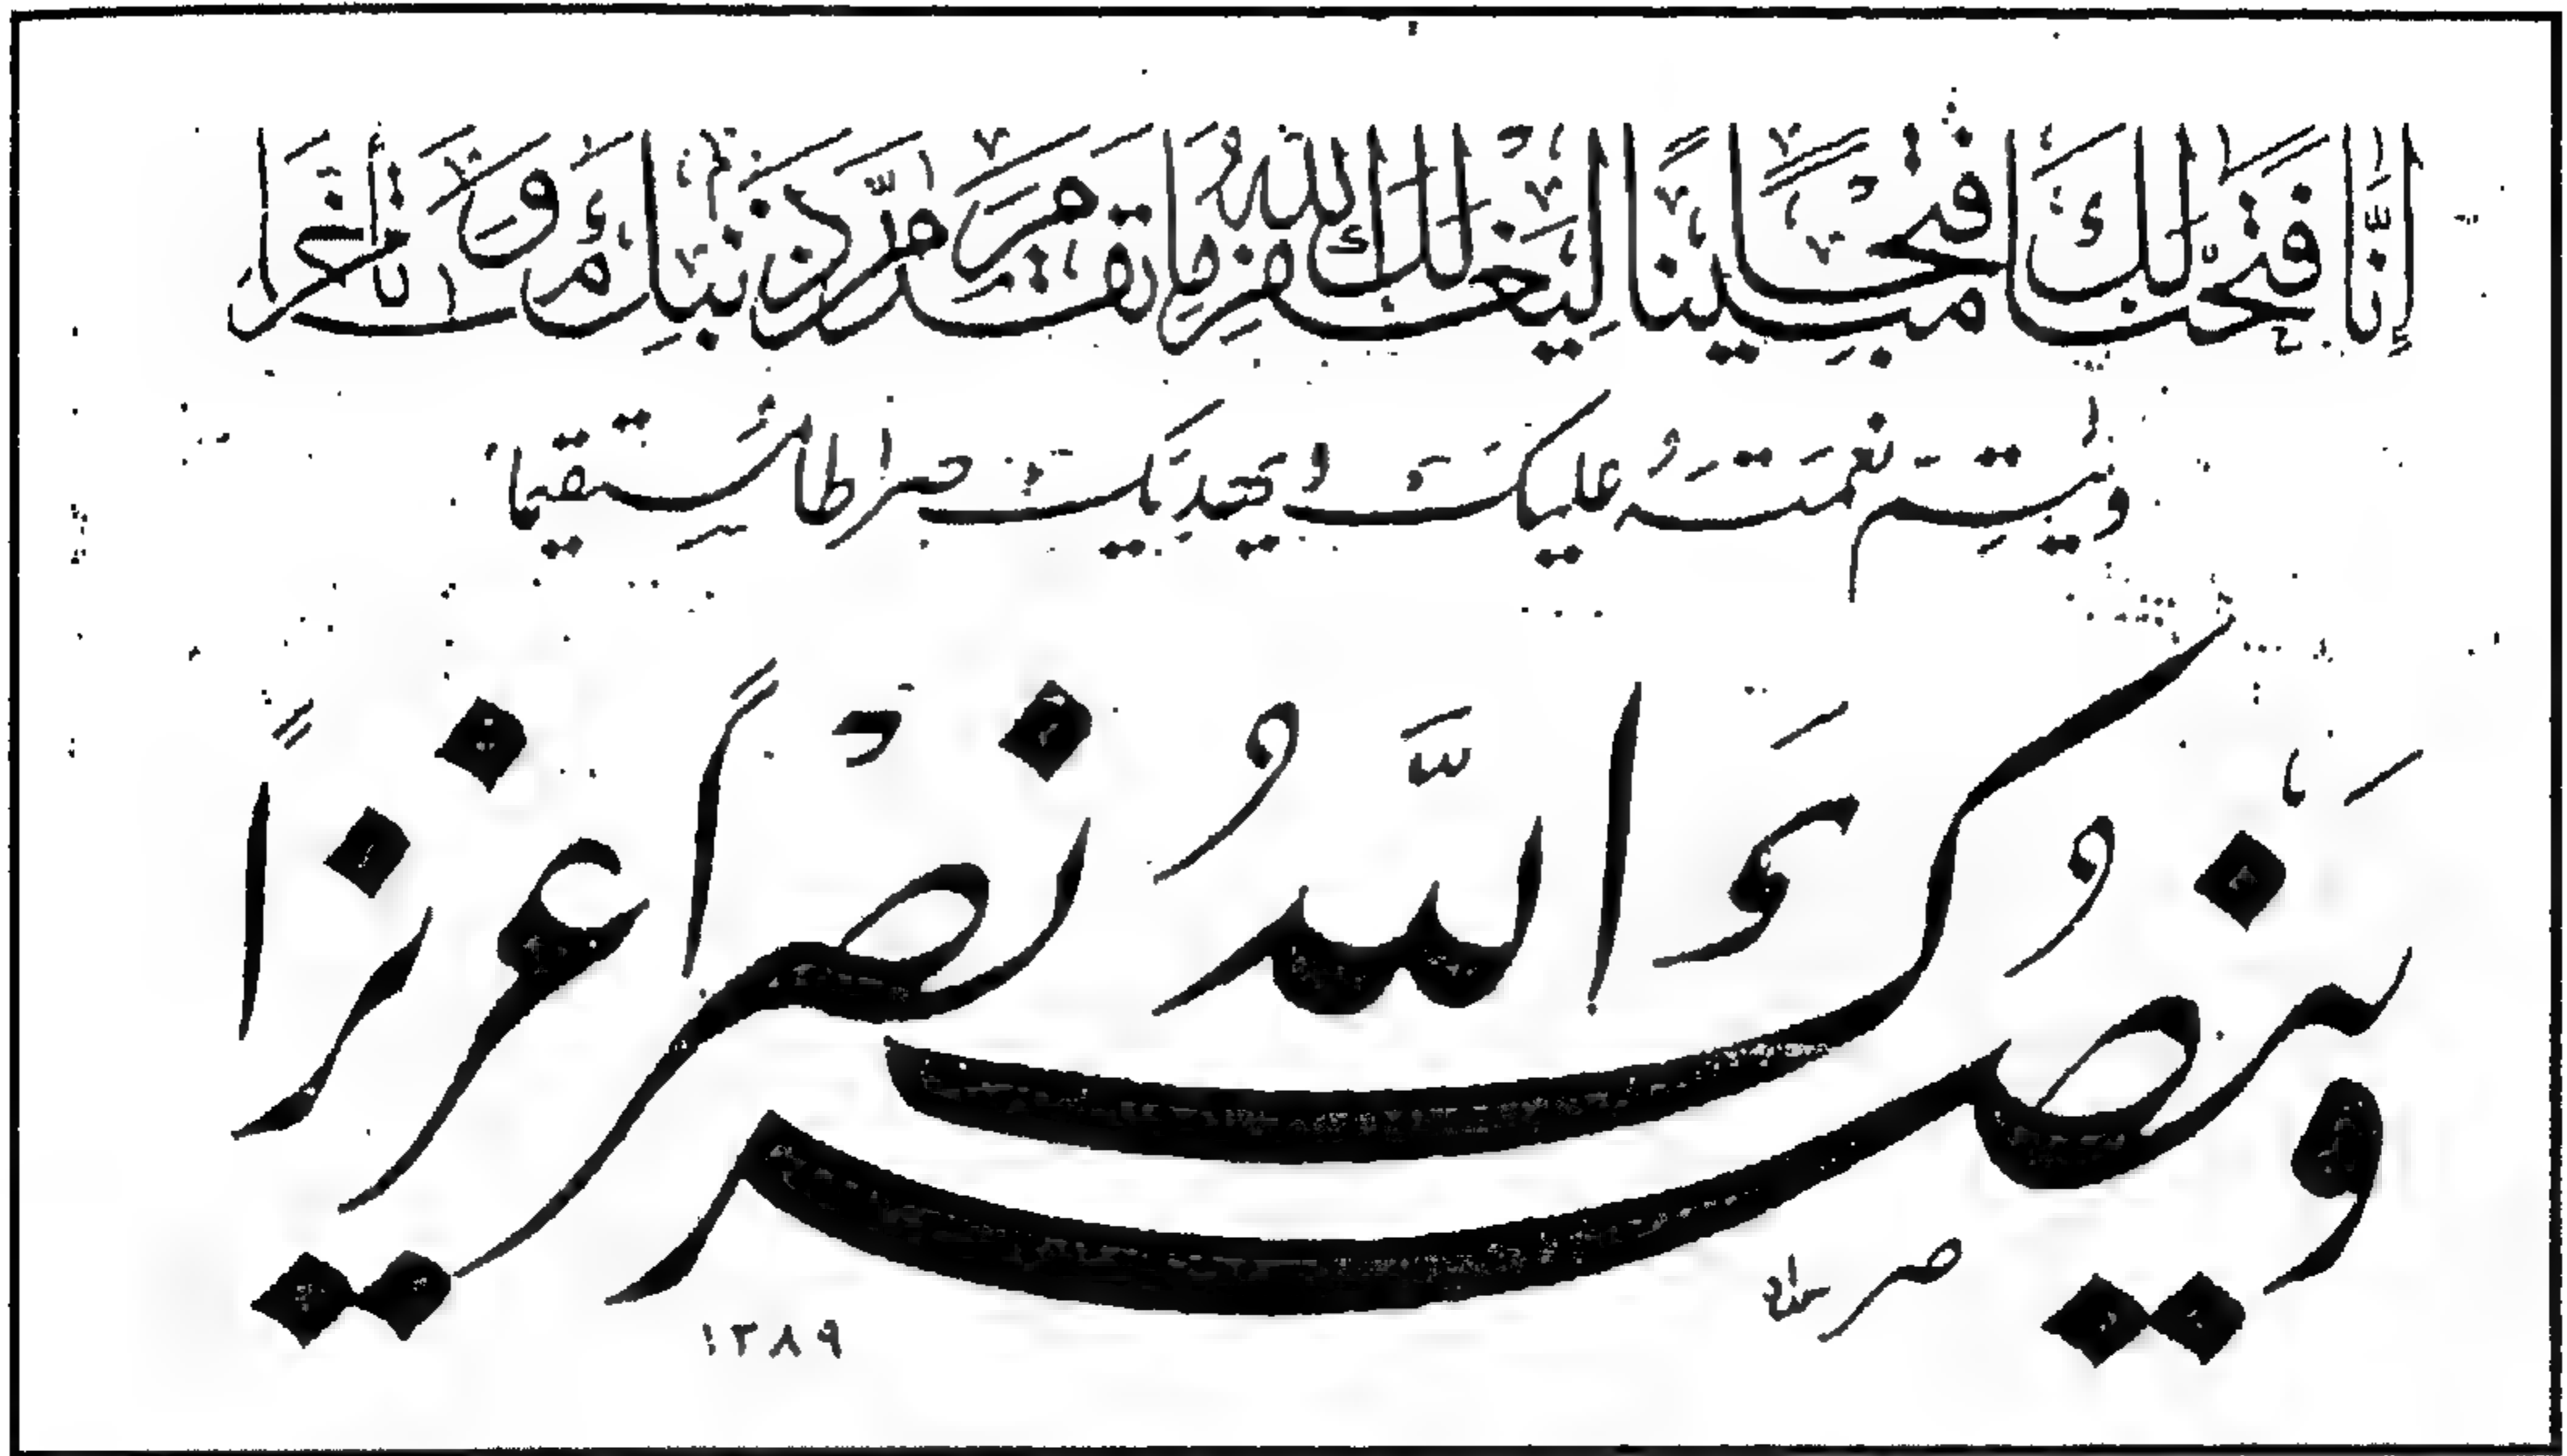 إِنَّا فَتَحْنَا لَكَ فَتْحًا مُبِينًا لِيَغْفِرَ لَكَ اللهُ مَا تَقَدَّمَ مِنْ ذَنْبِكَ وَمَا تَأَخَّرَ
وَيُتِمَّ نِعْمَتَهُ عَلَيْكَ وَيَهْدِيَكَ صِرَاطًا مُسْتَقِيمًا
وَيَنْصُرَكَ اللَّهُ نَصْرًا عَزِيزًا
١٣٨٩